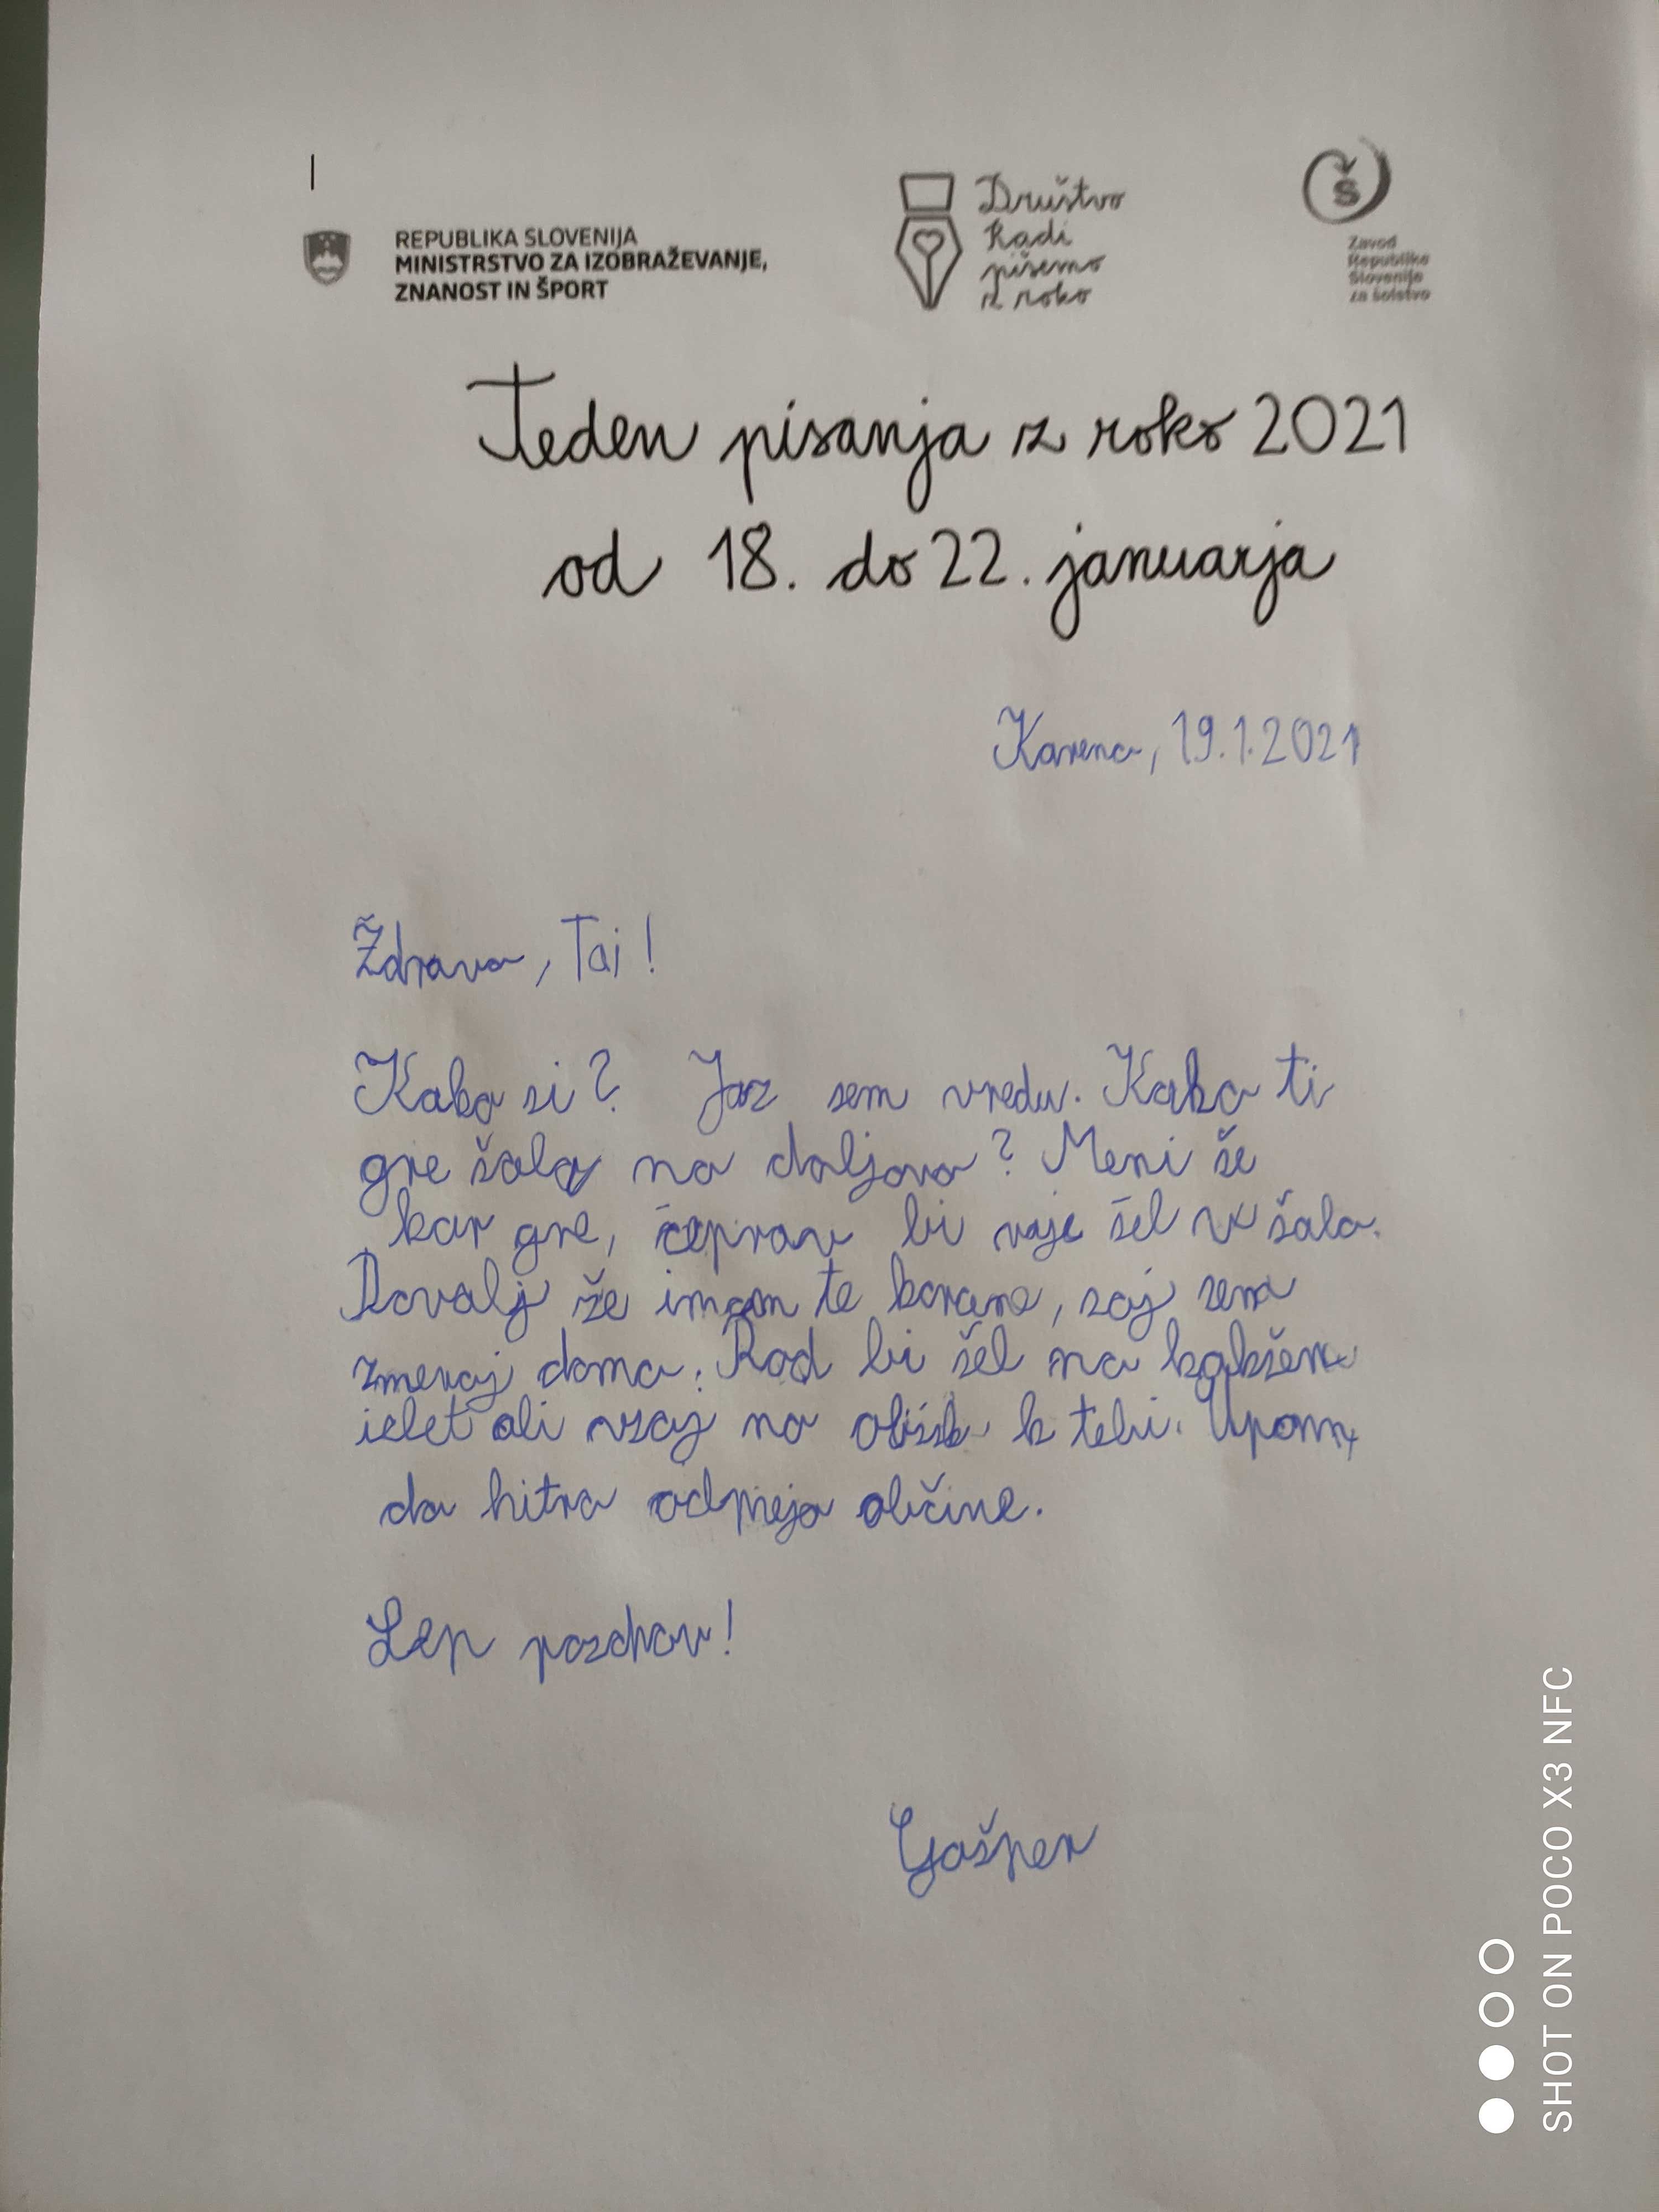 REPUBLIKA SLOVENIJA
MINISTRSTVO ZA IZOBRAŽEVANJE,
ZNANOST IN ŠPORT
Društvo
Radi
pišemo
z roko
Š
Zavod
Republike
Slovenije
za šolstvo
Teden pisanja z roko 2021
od 18. do 22. januarja
19.1.2021
Ždravo, Taj!
Kako si? Jaz sem vredu. Kako ti
gre šola na daljavo? Meni še
kar gre, čeprav bi raje šel v šolo.
Dovolj že imam te korone, saj sem
zmeraj doma. Rad bi šel na kakšen
izlet ali vsaj na obisk k tebi. Upam,
da hitro odprejo občine.
Lep pozdrav!
Gašper
SHOT ON POCO X3 NFC